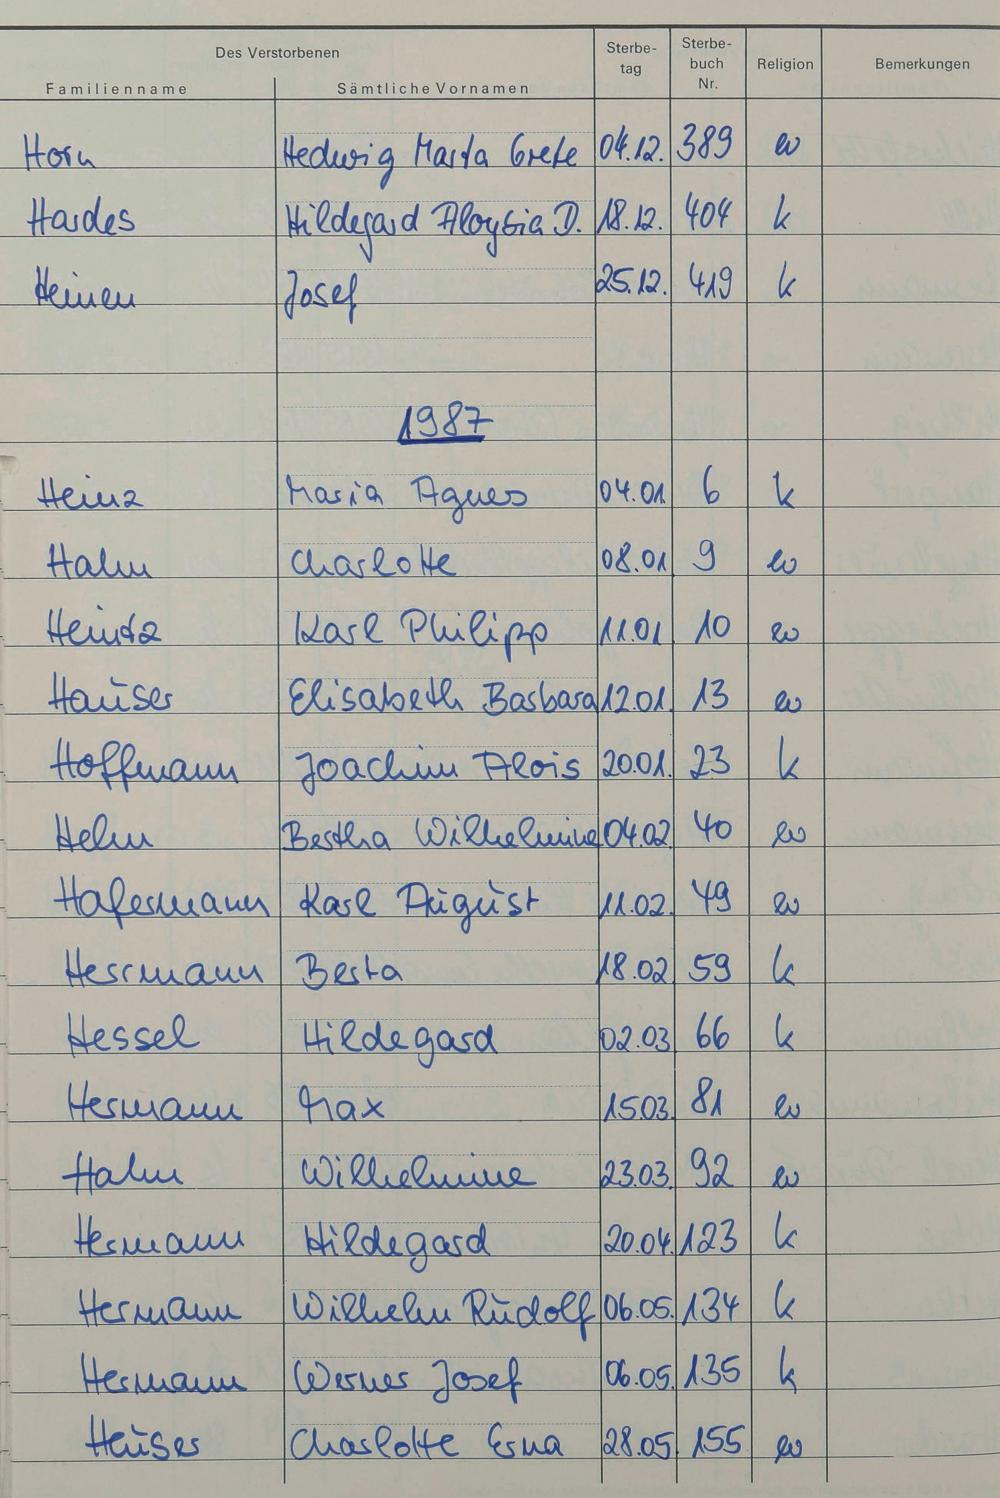 Des Verstorbenen Sterbe- Sterbe-
tag buch Religion Bemerkungen
Familienname Sämtliche Vornamen Nr.
Horn Hedwig Marta Grete 04.12. 389 ev
Hardes Hildegard Aloysia D. 18.12. 404 k
Heinen Josef 25.12. 419 k
1987
Heinz Maria Agnes 04.01. 6 k
Hahn Charlotte 08.01. 9 ev
Heintz Karl Philipp 11.01. 10 ev
Hauser Elisabeth Barbara 12.01. 13 ev
Hoffmann Joachim Alois 20.01. 23 k
Helm Bertha Wilhelmine 04.02. 40 ev
Hafermann Karl August 11.02. 49 ev
Herrmann Berta 18.02. 59 k
Hessel Hildegard 02.03. 66 k
Hermann Max 15.03. 81 ev
Hahn Wilhelmine 23.03. 92 ev
Hermann Hildegard 20.04. 123 k
Hermann Wilhelm Rudolf 06.05. 134 k
Hermann Werner Josef 06.05. 135 k
Heuser Charlotte Erna 28.05. 155 ev